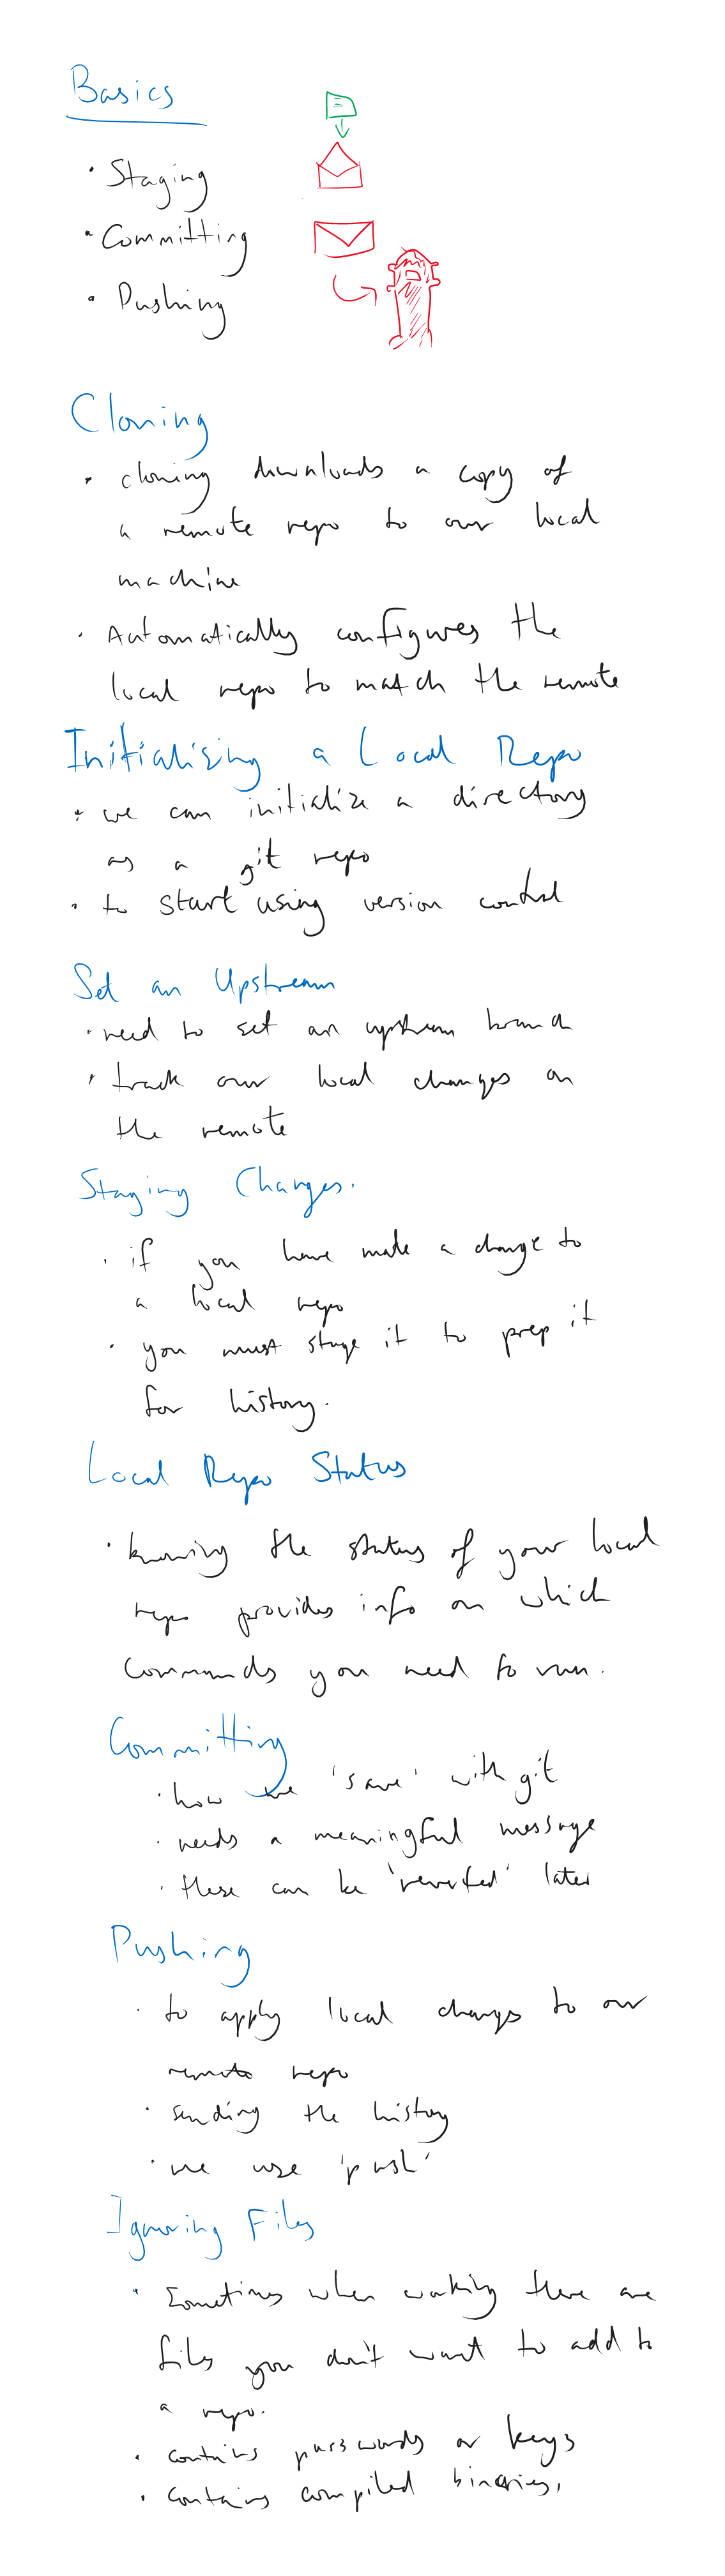 Basics
• Staging
• Committing
• Pushing
Cloning
• cloning downloads a copy of
a remote repo to our local
machine
• Automatically configures the
local repo to match the remote
Initialising a Local Repo
• we can initialize a directory
as a git repo
• to start using version control
Set an Upstream
• need to set an upstream branch
• track our local changes on
the remote
Staging Changes.
• if you have made a change to
a local repo
• you must stage it to prep it
for history.
Local Repo Status
• knowing the status of your local
repo provides info on which
commands you need to run.
Committing
• how we 'save' with git
• needs a meaningful message
• these can be 'reverted' later
Pushing
• to apply local changes to our
remote repo
• sending the history
• we use 'push'
Ignoring Files
• Sometimes when working there are
files you don't want to add to
a repo.
• contains passwords or keys
• contains compiled binaries.